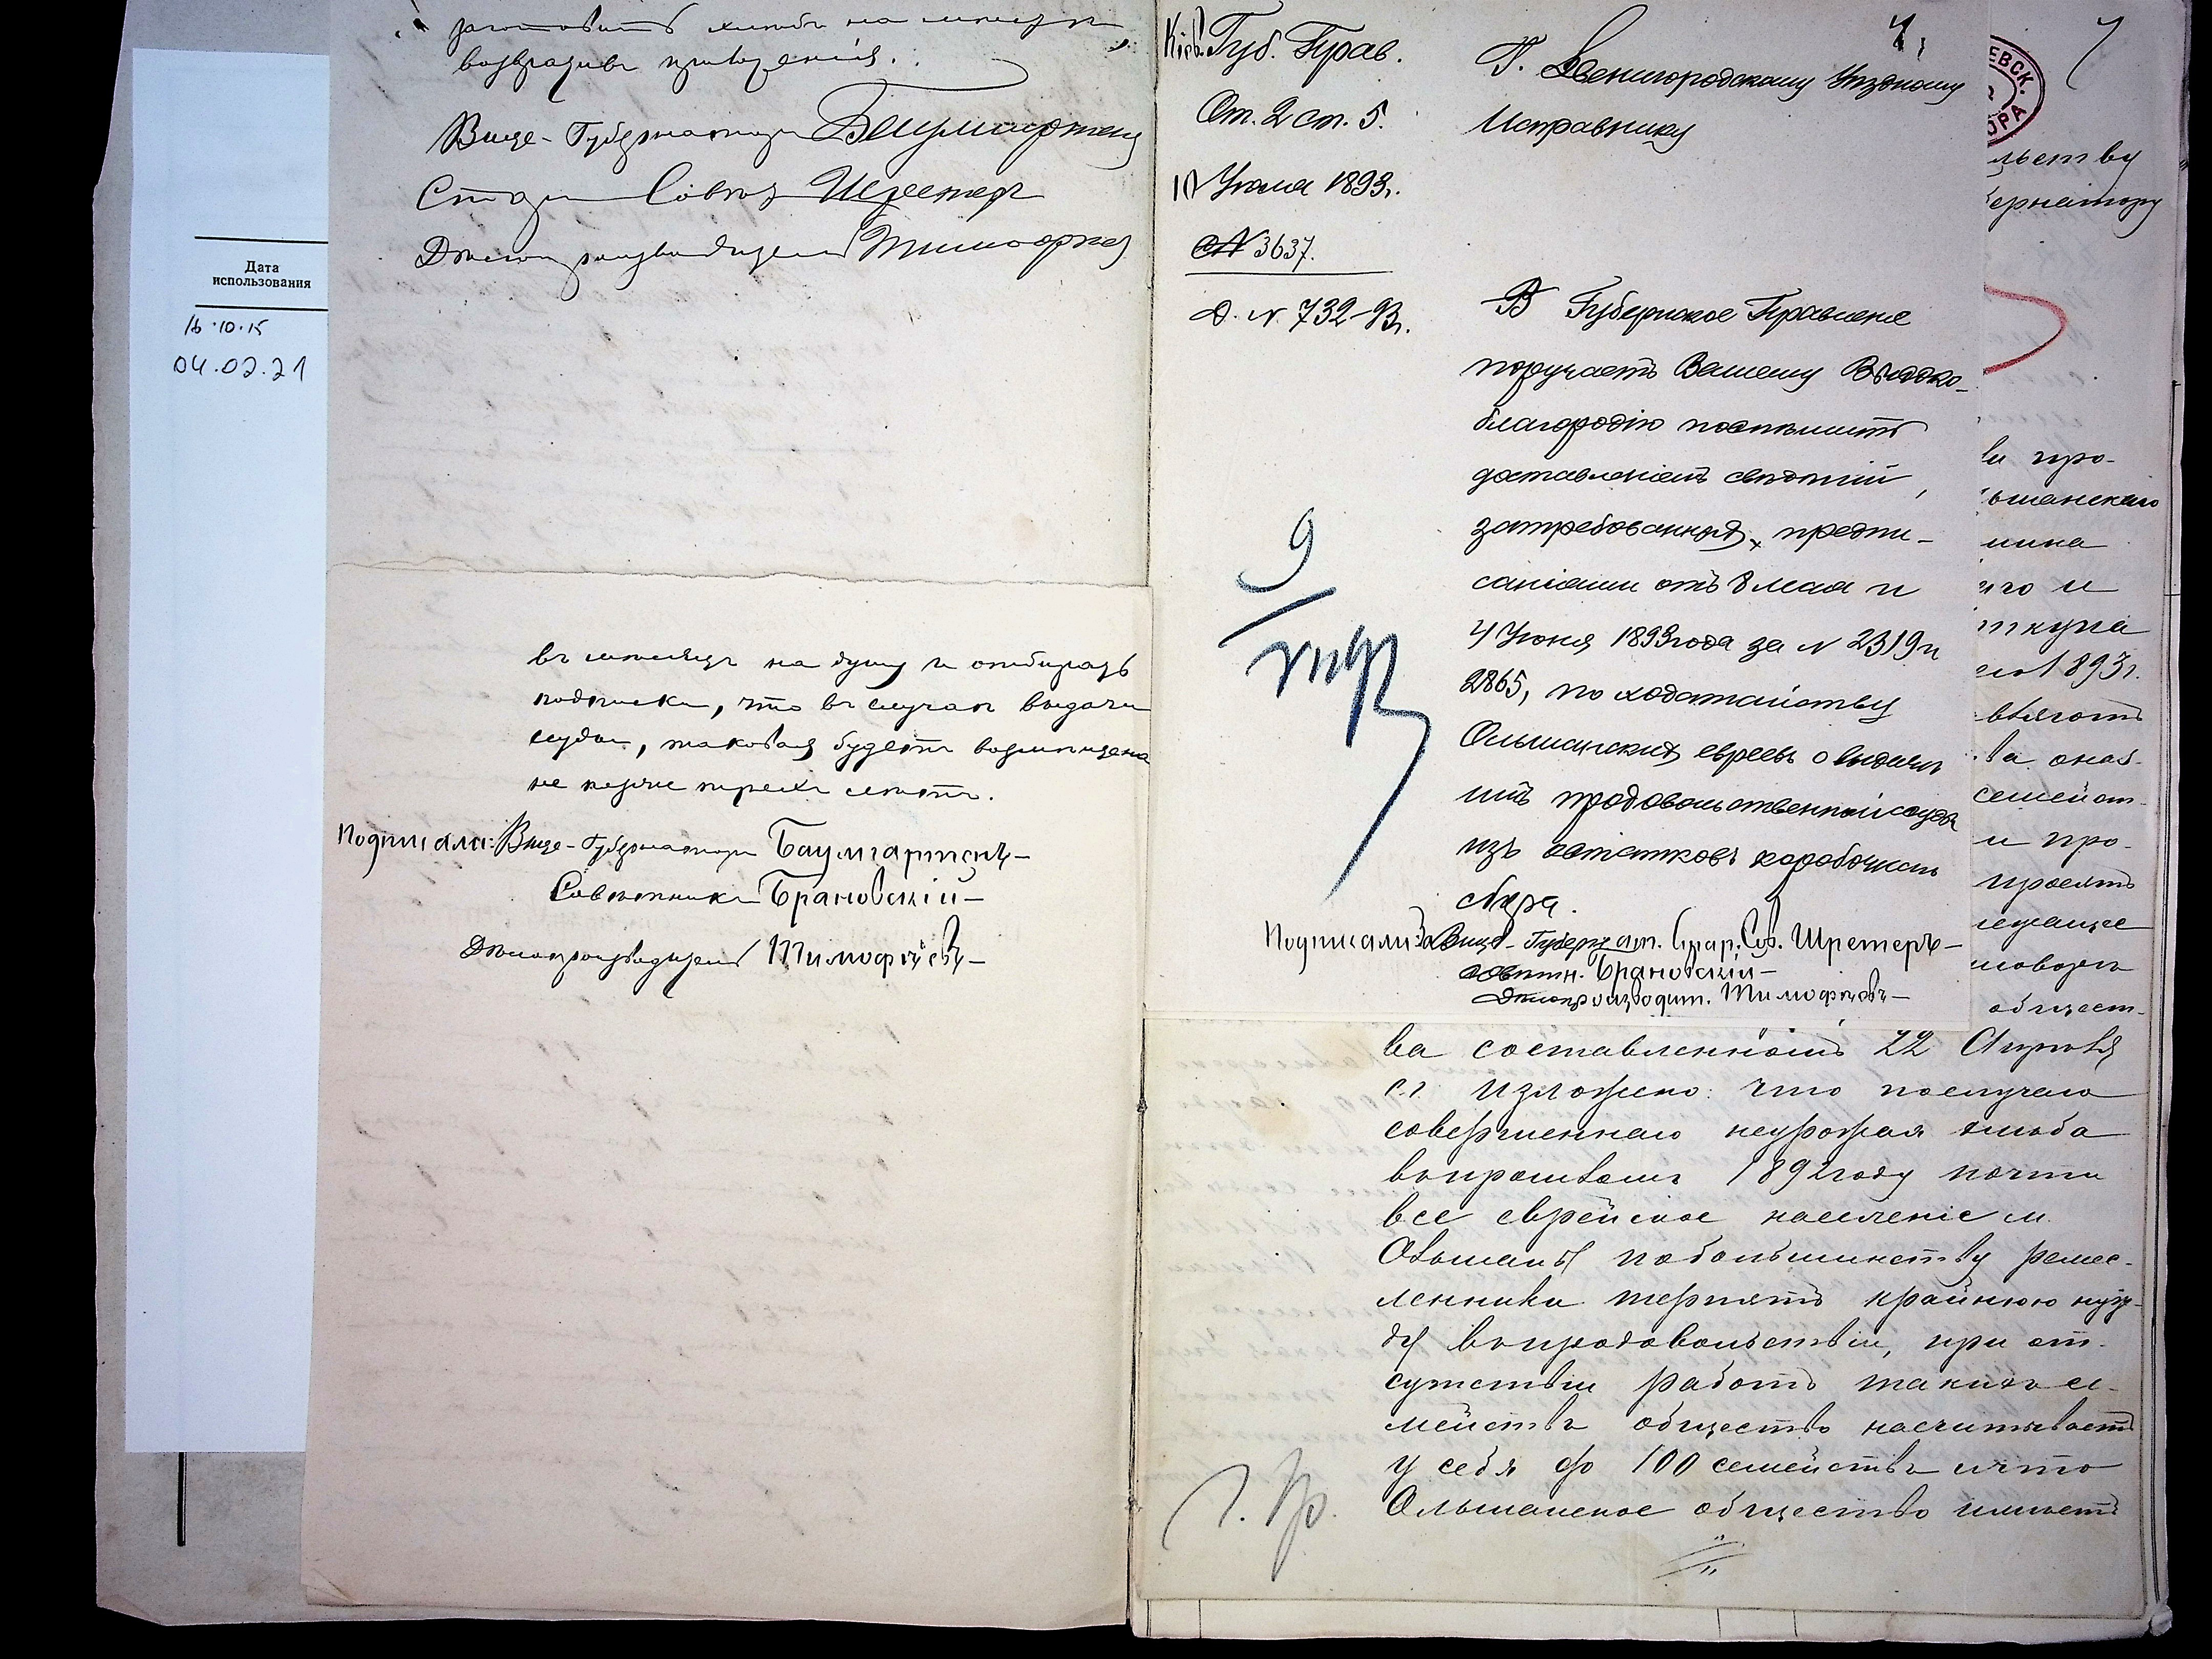 Дата
использования
16.10.15
04.02.21
возвративъ приложенія.
Вице-Губернаторъ Баумгартенъ
Совѣт Шретеръ
Дѣлопроизводитель Тимофѣев
въ мѣсяцъ на душу и отбирать
подписки, что въ случаѣ выдачи
ссуды, таковая будетъ возмѣщена
не позже трехъ лѣтъ.
Подписали: Вице-Губернаторъ Баумгартенъ—
Совѣтникъ Брановскій—
Дѣлопроизводитель Тимофѣевъ—
Кіев. Губ. Прав.
От. 2 ст. 5.
10 Іюля 1893г.
№ 3637.
Д. № 732-93г.
9
VII 93
Г. Звенигородскому Уѣздному
Исправнику
В Губернское Правленіе
поручаетъ Вашему Высоко-
благородію поспѣшить
доставленіемъ свѣдѣній,
затребованныхъ предпи-
саніями отъ 8 мая и
4 Іюня 1893 года за № 2319 и
2865, по ходатайству
Ольшанскихъ евреевъ о выдачѣ
имъ продовольственной ссуды
изъ остатковъ коробочнаго
сбора.
Подписали: За Вице-Губернат. Стар. Сов. Шретеръ—
Совѣтн. Брановскій—
Дѣлопроизводит. Тимофѣевъ—
4
ЕВСК.
ОРА
льству
бернатору
ва про-
ьшанскаго
мина
го и
ткупа
1893г.
семейст-
и про-
просятъ
лежащее
общест-
ва составленномъ 22 Апрѣля
с.г. изложено: что послучаю
совершеннаго неурожая хлѣба
въ прошломъ 1892 году почти
все еврейское населеніе м.
Ольшаны по большинству ремес-
ленники терпятъ крайнюю нуж-
ду въ продовольствіи, при от-
сутствіи работъ такихъ се-
мействъ общество насчитываетъ
у себя до 100 семействъ и что
Ольшанское общество имѣетъ